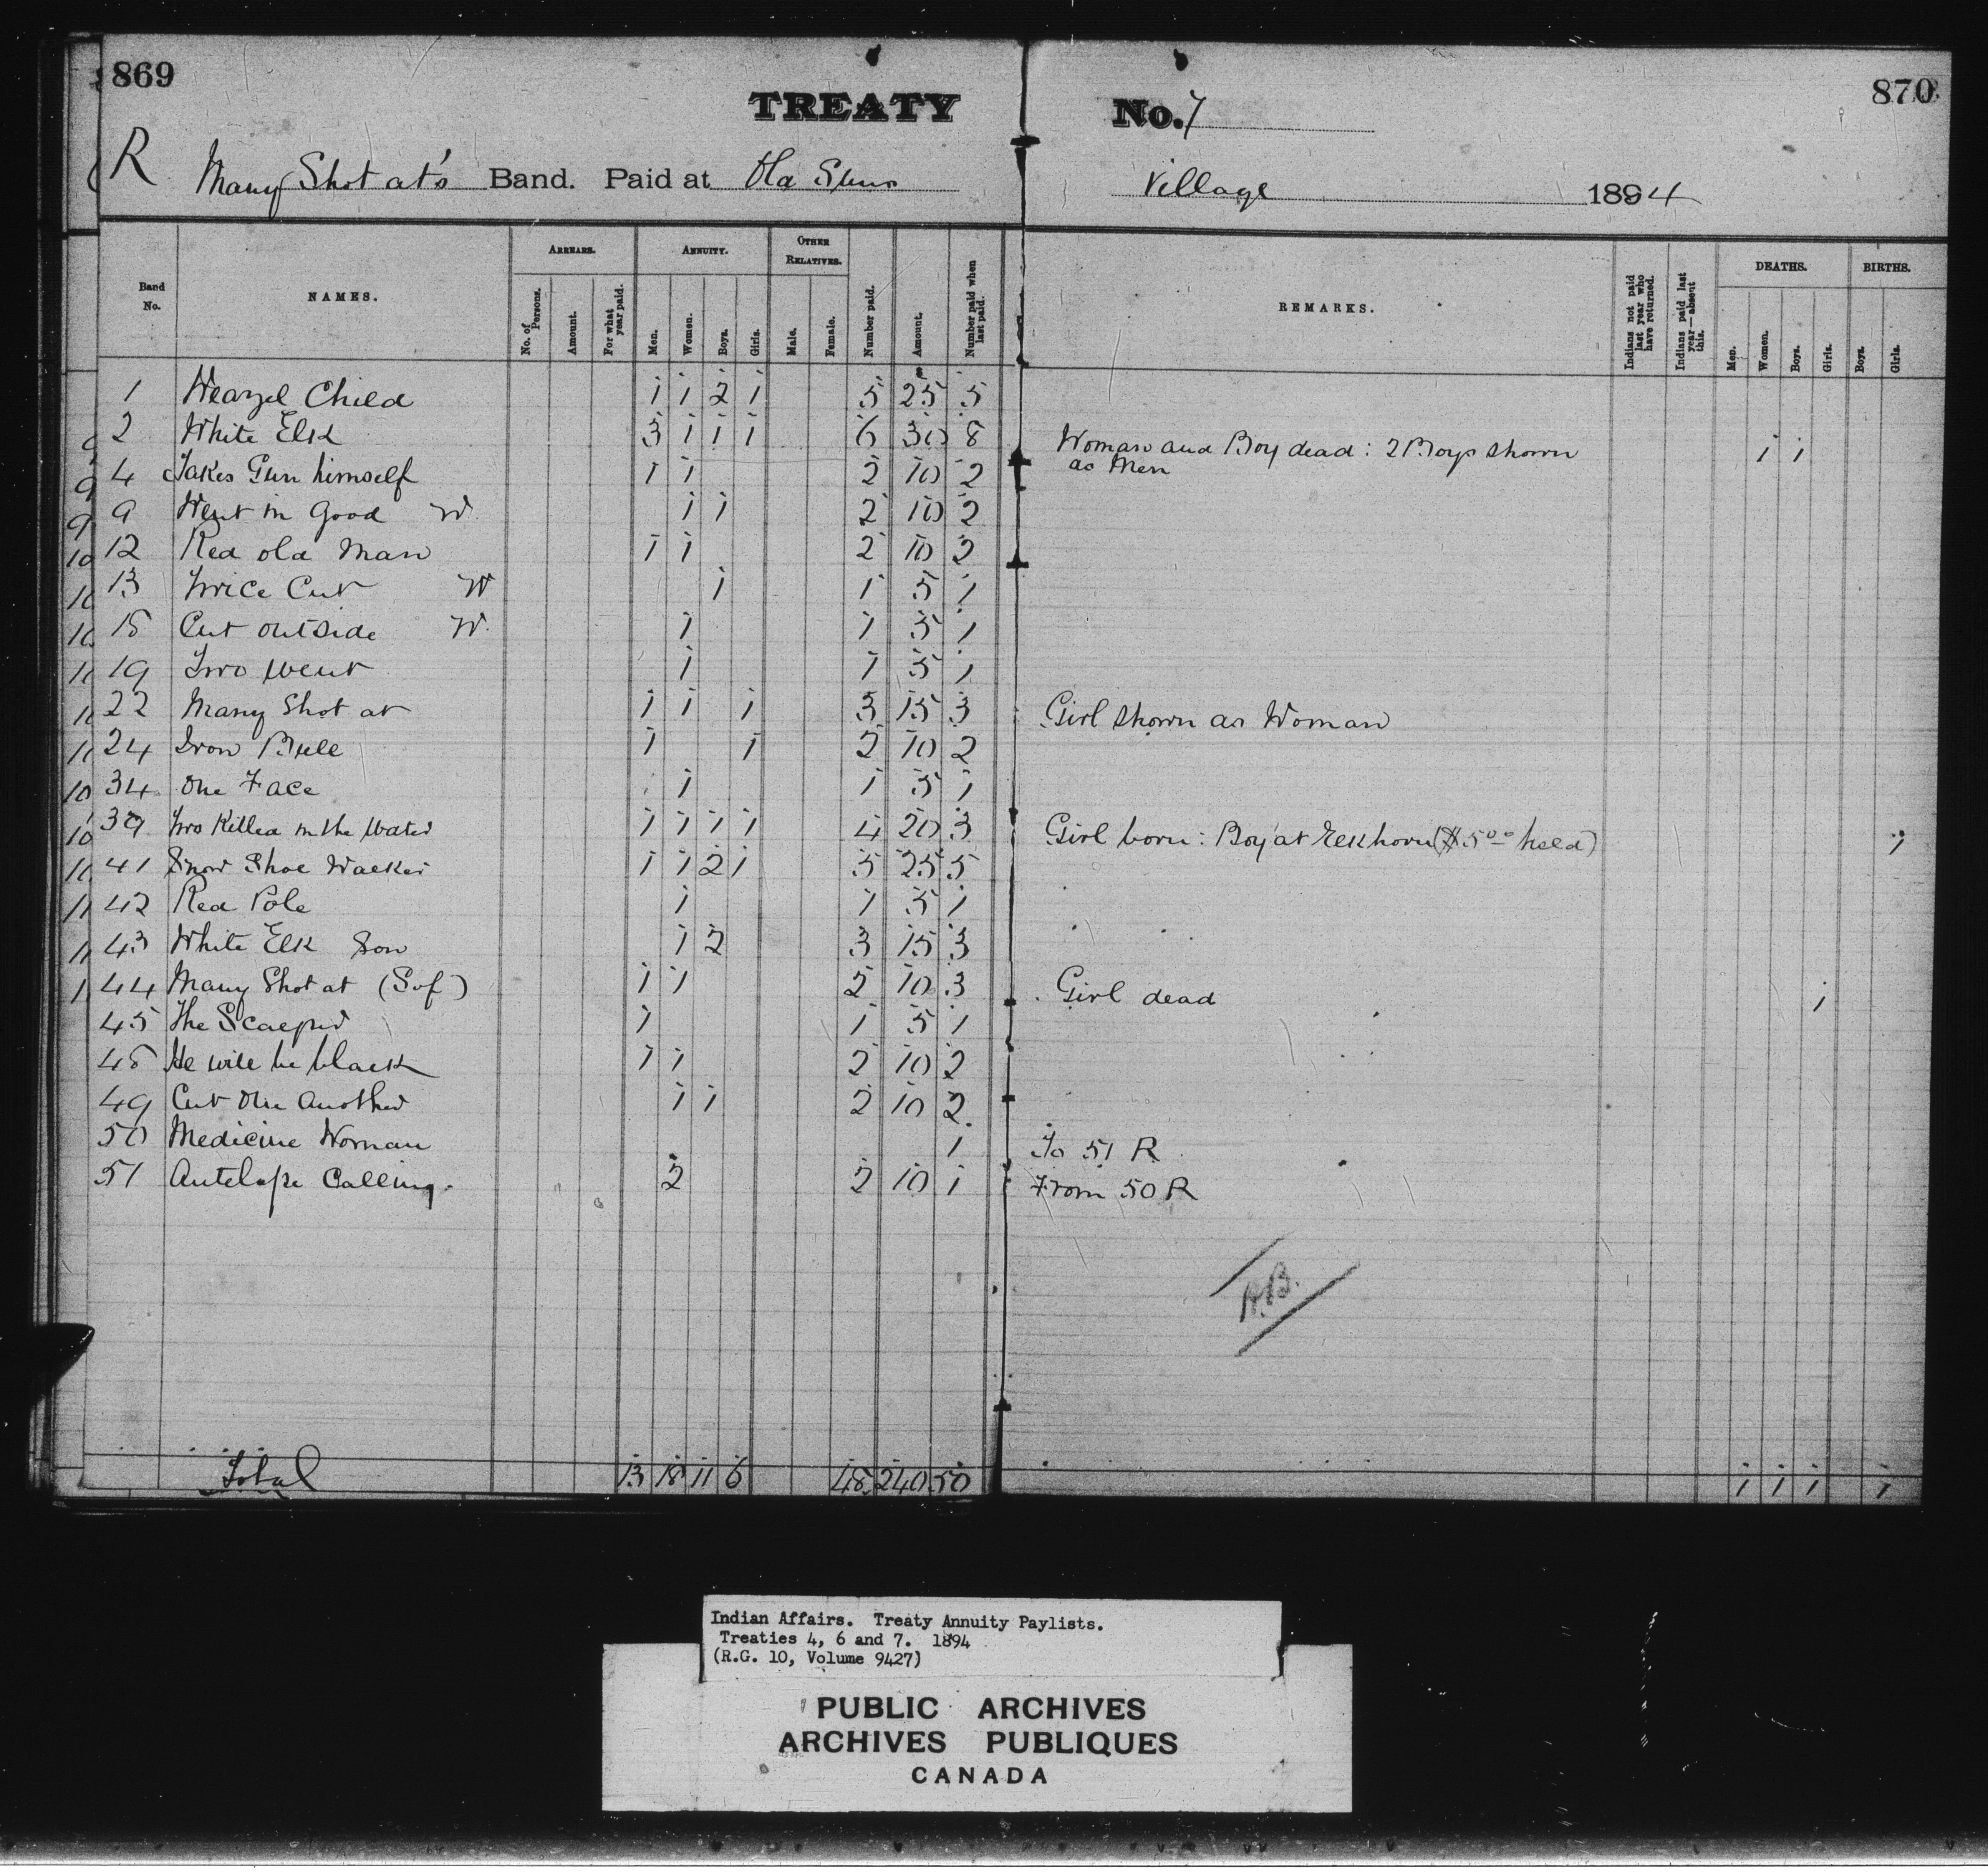 869
TREATY No. 7
870
R Many Shot at's Band. Paid at Old Suns Village 1894
Band No. NAMES. ARREARS. No. of Persons. Amount. For what year paid. ANNUITY. Men. Women. Boys. Girls. OTHER RELATIVES. Male. Female. Number paid. Amount. Number paid when last paid. REMARKS. Indians not paid last year who have returned. Indians paid last year—absent this. DEATHS. Men. Women. Boys. Girls. BIRTHS. Boys. Girls.
1 Weazel Child 1 1 2 1 5 25 5
2 White Elk 3 1 1 1 6 30 8 Woman and Boy dead: 2 Boys shown as Men 1 1
4 Takes Gun himself 1 1 2 10 2
9 Went in Good W. 1 1 2 10 2
12 Red old Man 1 1 2 10 2
13 Twice Cut W 1 1 5 1
18 Cut outside W. 1 1 5 1
19 Two went 1 1 5 1
22 Many Shot at 1 1 1 3 15 3 Girl shown as Woman
24 Iron Bull 1 1 2 10 2
34 One Face 1 1 5 1
39 Two Killed in the Water 1 1 1 1 4 20 3 Girl born: Boy at Elkhorn ($5.00 held) 1
41 Snow Shoe Walker 1 1 2 1 5 25 5
42 Red Pole 1 1 5 1
43 White Elk Son 1 2 3 15 3
44 Many Shot at (S of) 1 1 2 10 3 Girl dead 1
45 The Scalper 1 1 5 1
48 He will be black 1 1 2 10 2
49 Cut One Another 1 1 2 10 2
50 Medicine Woman 1 To 51 R
51 Antelope Calling. 2 2 10 1 From 50 R
R.B.
Total 13 18 11 6 48 240 50 1 1 1 1
Indian Affairs. Treaty Annuity Paylists.
Treaties 4, 6 and 7. 1894
(R.G. 10, Volume 9427)
PUBLIC ARCHIVES
ARCHIVES PUBLIQUES
CANADA